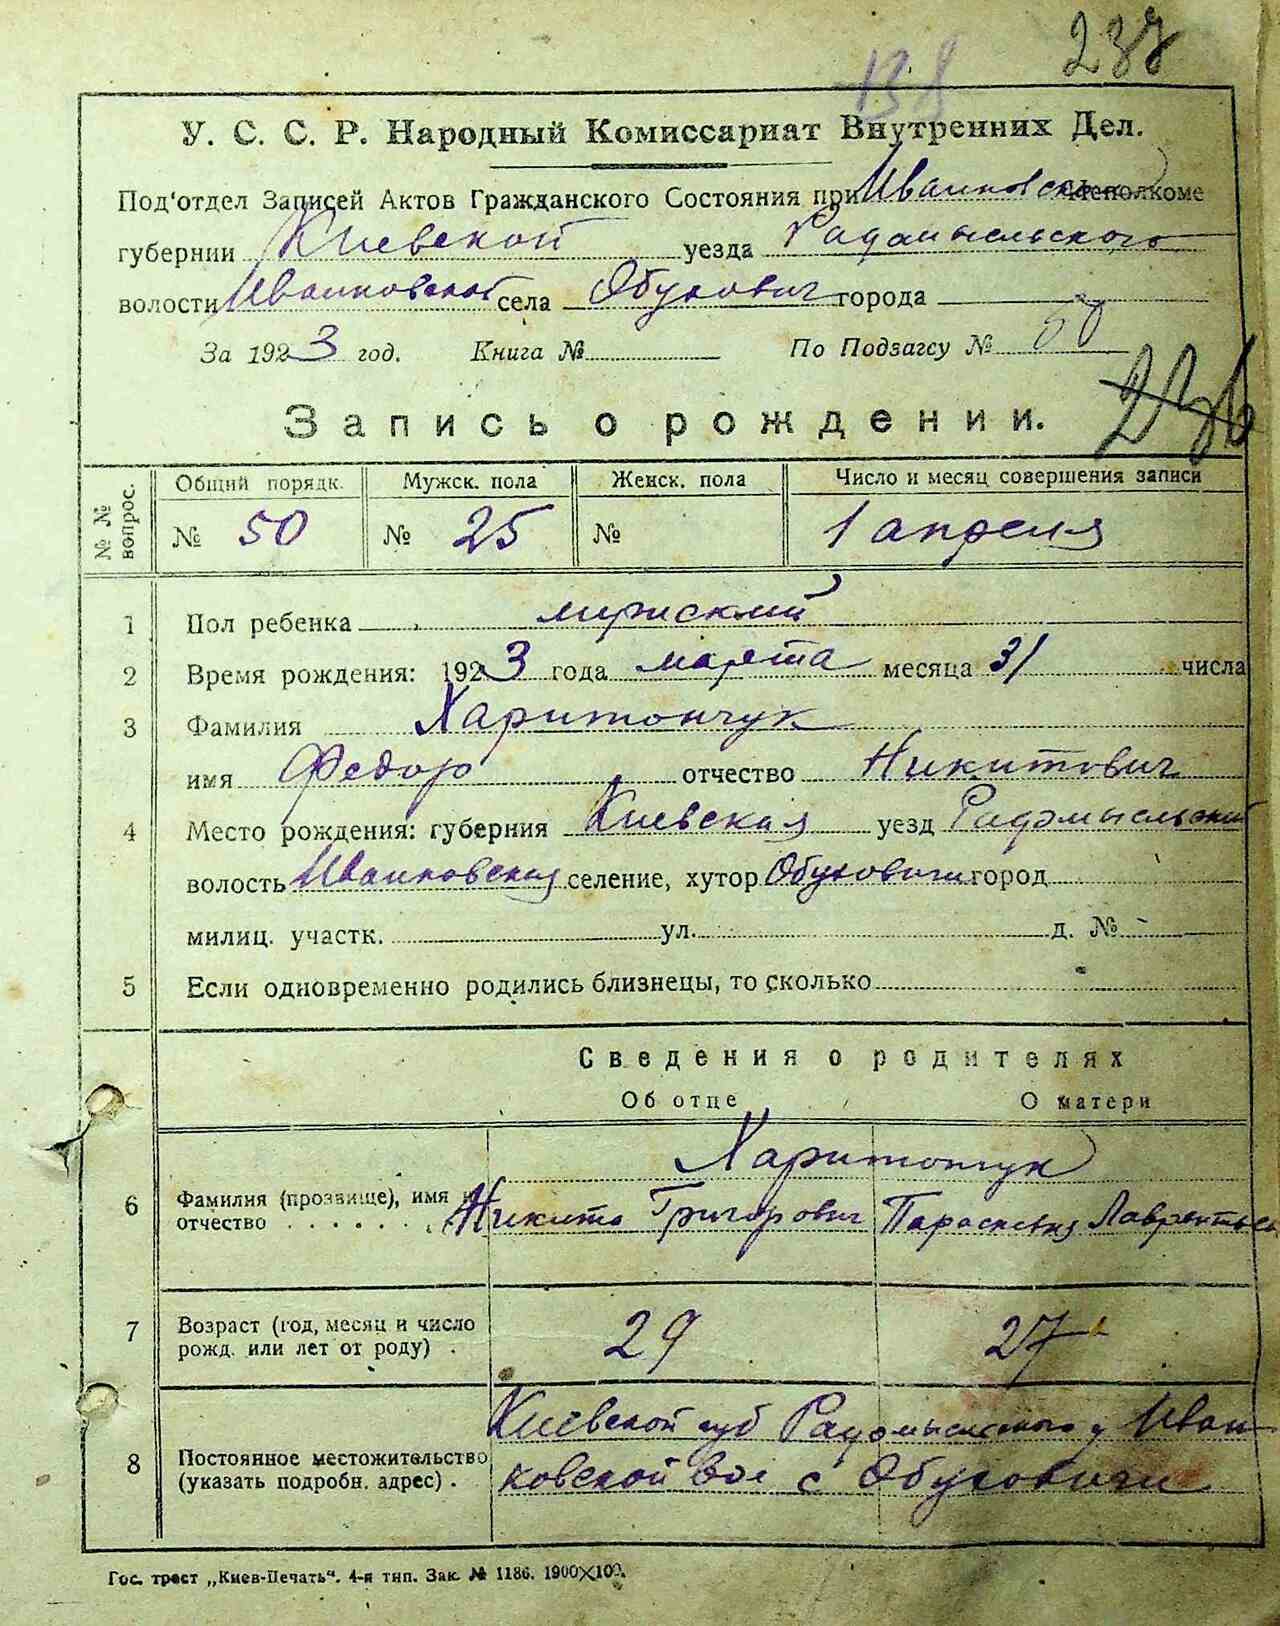 237
138
У. С. С. Р. Народный Комиссариат Внутренних Дел.
Под'отдел Записей Актов Гражданского Состояния при Иванковском Исполкоме
губернии Киевской уезда Радомысльского
волости Иванковской села Обухович города
За 1923 год. Книга № По Подзагсу № 50
236
Запись о рождении.
№ № вопрос. Общий порядк. Мужск. пола Женск. пола Число и месяц совершения записи
№ 50 № 25 № 1 апреля
1 Пол ребенка мужский
2 Время рождения: 1923 года марта месяца 31 числа
3 Фамилия Харитончук
имя Федор отчество Никитович
4 Место рождения: губерния Киевская уезд Радомысльский
волость Иванковская селение, хутор Обуховичи город
милиц. участк. ул. д. №
5 Если одновременно родились близнецы, то сколько
Сведения о родителях
Об отце О матери
Харитончук
6 Фамилия (прозвище), имя и
отчество Никита Григорович Параскевия Лаврентьев
7 Возраст (год, месяц и число
рожд. или лет от роду) . 29 27
Киевской губ Радомысльского у Иван-
8 Постоянное местожительство
(указать подробн. адрес) . ковской вол с Обуховичи
Гос. трест „Киев-Печать“. 4-я тип. Зак. № 1186. 1900×100.